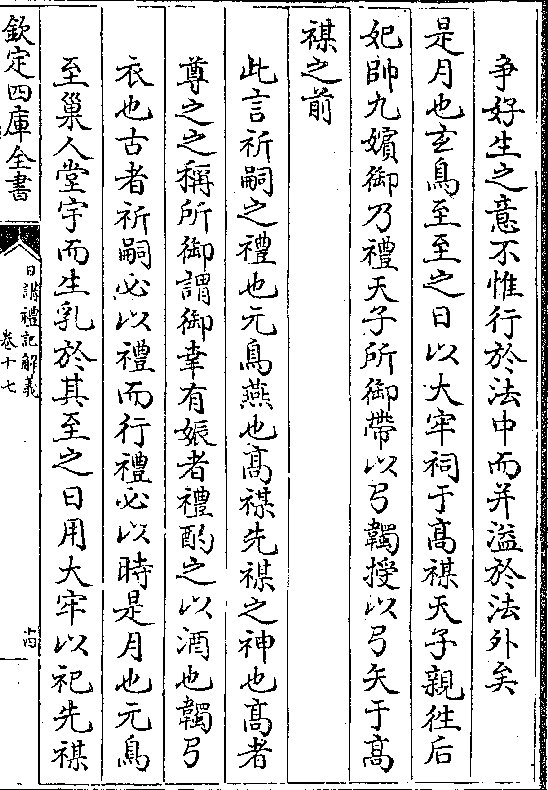 争好生之意不惟行於法中而并溢於法外矣
是月也玄鳥至至之日以大牢祠于髙禖天子親徃后
妃帥九嬪御乃禮天子所御帶以弓韣授以弓矢于髙
禖之前
此言祈嗣之禮也元鳥燕也髙禖先禖之神也髙者
尊之之稱所御謂御幸有娠者禮酌之以酒也韣弓
衣也古者祈嗣必以禮而行禮必以時是月也元鳥
至巢人堂宇而生乳於其至之日用大牢以祀先禖
欽定四庫全書
日講禮記解義
卷十七
十四